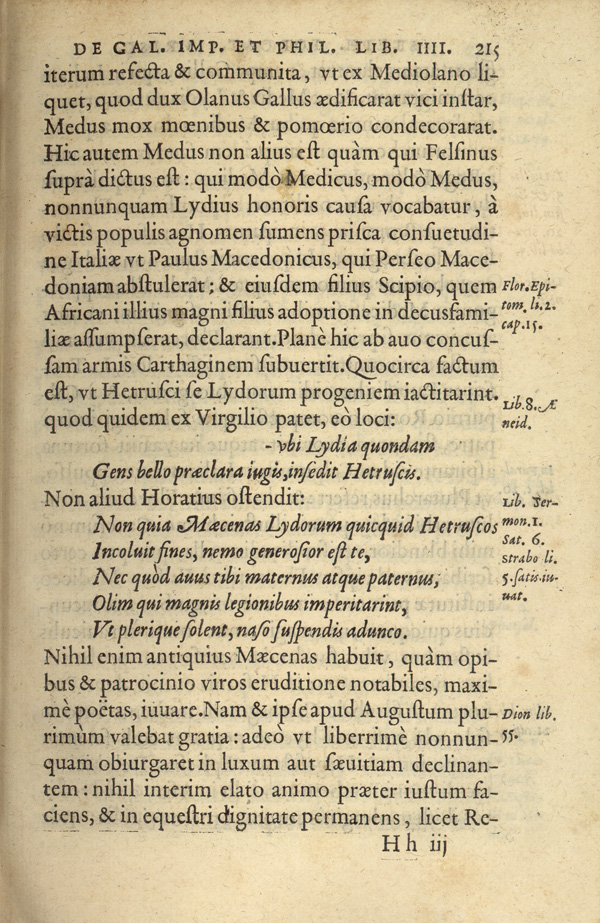 DE GAL. IMP. ET PHIL. LIB. IIII. 215
iterum refecta & communita, vt ex Mediolano li-
quet, quod dux Olanus Gallus ædificarat vici inſtar,
Medus mox mœnibus & pomœrio condecorarat.
Hic autem Medus non alius eſt quàm qui Felſinus
ſuprà dictus eſt: qui modò Medicus, modò Medus,
nonnunquam Lydius honoris cauſa vocabatur, à
victis populis agnomen ſumens priſca conſuetudi-
ne Italiæ vt Paulus Macedonicus, qui Perſeo Mace-
doniam abſtulerat; & eiuſdem filius Scipio, quem
Africani illius magni filius adoptione in decusfami-
liæ aſſumpſerat, declarant. Planè hic ab auo concuſ-
ſam armis Carthaginem ſubuertit. Quocirca factum
eſt, vt Hetruſci ſe Lydorum progeniem iactitarint.
quod quidem ex Virgilio patet, eò loci:
- vbi Lydia quondam
Gens bello præclara iugis, inſedit Hetruſcis.
Non aliud Horatius oſtendit:
Non quia Mæcenas Lydorum quicquid Hetruſcos
Incoluit fines, nemo generoſior eſt te,
Nec quòd auus tibi maternus atque paternus,
Olim qui magnis legionibus imperitarint,
Vt plerique ſolent, naſo ſuſpendis adunco.
Nihil enim antiquius Mæcenas habuit, quàm opi-
bus & patrocinio viros eruditione notabiles, maxi-
mè poëtas, iuuare. Nam & ipſe apud Auguſtum plu-
rimùm valebat gratia: adeò vt liberrimè nonnun-
quam obiurgaret in luxum aut ſæuitiam declinan-
tem: nihil interim elato animo præter iuſtum fa-
ciens, & in equeſtri dignitate permanens, licet Re-
H h iij
Flor. Epi-
tom. li. 2.
cap. 15.
Lib. 8. Æ
neid.
Lib. Ser-
mon. 1.
Sat. 6.
Strabo li.
5. ſatis iu-
uat.
Dion lib.
55.